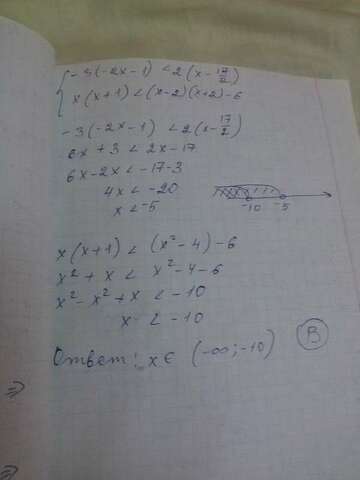 { -3(-2x-1) < 2(x-17/2)
x(x+1) < (x-2)(x+2)-6
-3(-2x-1) < 2(x-17/2)
6x+3 < 2x-17
6x-2x < -17-3
4x < -20
x < -5
-10 -5
x(x+1) < (x²-4)-6
x²+x < x²-4-6
x²-x²+x < -10
x < -10
В
Ответ: x ∈ (-∞; -10)
⇒
⇒